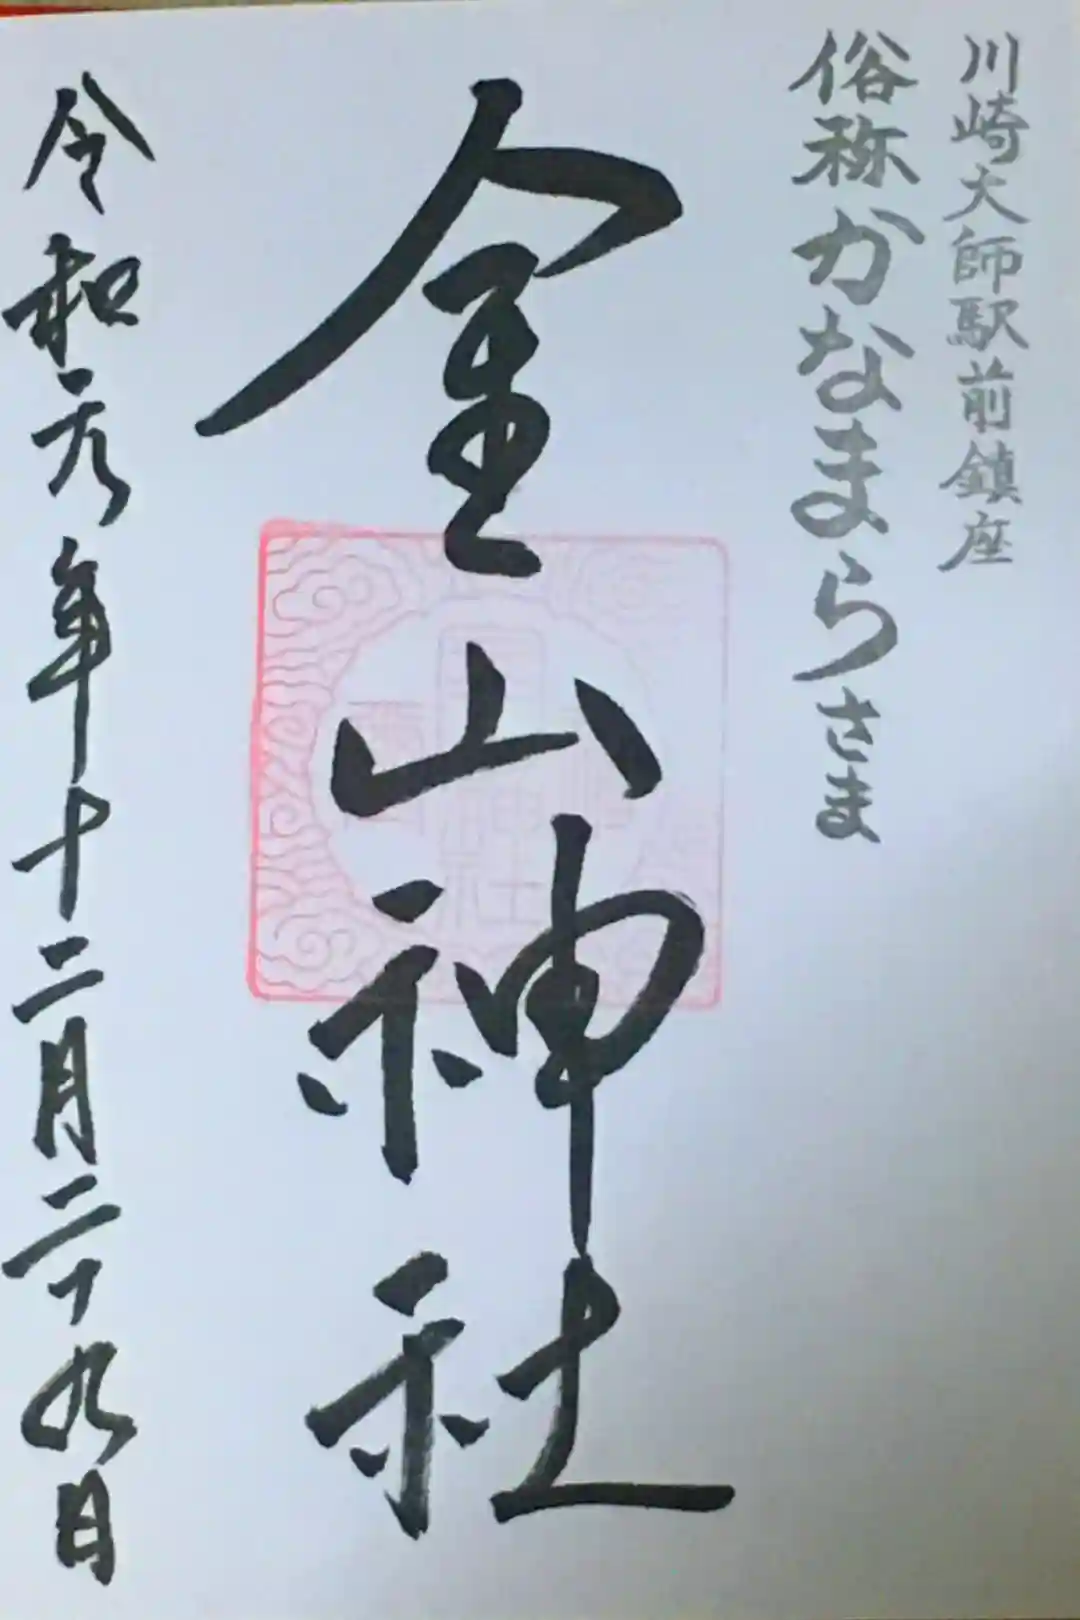 川崎大師駅前鎮座
俗称かなまらさま
金山神社
令和元年十二月二十九日